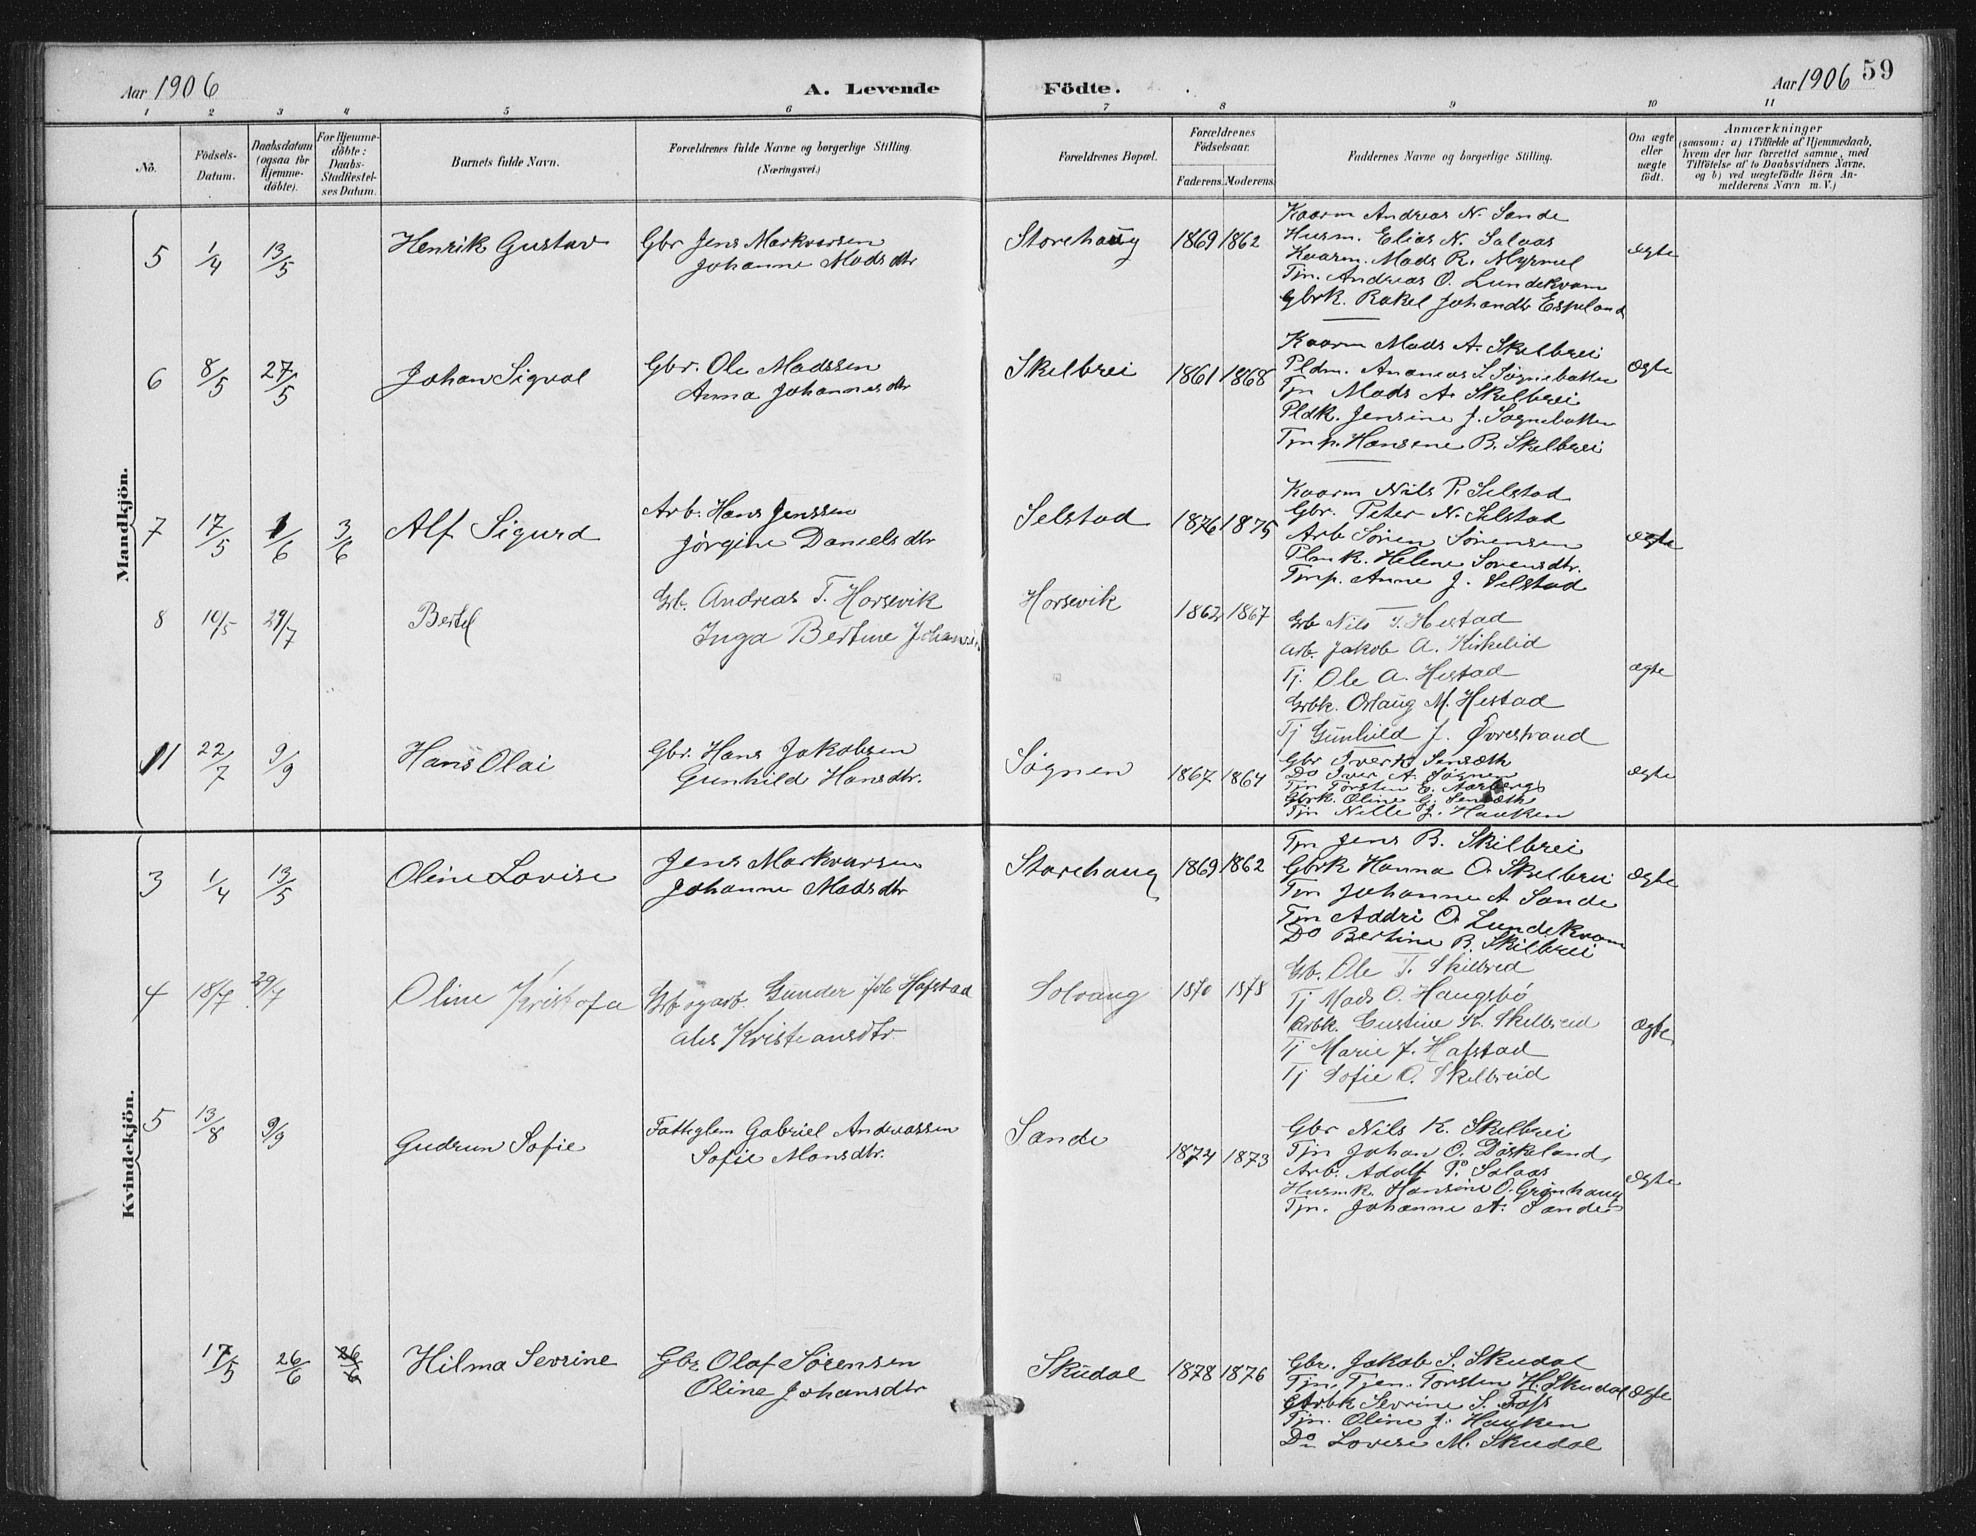 Aar 1906
A. Levende Födte.
Aar 1906 59
1 2 3 4 5 6 7 8 9 10 11
No.
Födsels-Datum.
Daabsdatum (ogsaa for Hjemme-döbte).
For Hjemme-döbte: Daabs-Stadfæstel-ses Datum.
Barnets fulde Navn.
Forældrenes fulde Navne og borgerlige Stilling.
(Næringsvei.)
Forældrenes Bopæl.
Forældrenes Födselsaar.
Faderens. Moderens.
Faddernes Navne og borgerlige Stilling.
Om ægte eller uægte födt.
Anmærkninger
(saasom: a) i Tilfælde af Hjemmedaab,
hvem der har forrettet samme, med
Tilföielse af to Daabsvidners Navne,
og b) ved uægtefödte Börn An-
melderens Navn m. V.)
Mandkjön.
5 1/4 13/5 Henrik Gustav
Gbr Jens Markvarsen
Johanne Madsdtr
Storehaug 1869 1862
Kaarm Andreas N. Sande
Husm. Elias N. Salaas
Kaarm. Mads R. Myrmel
Tjn. Andreas O. Lundekvam
Gbrk. Rakel Johandtr Espeland
ægte
6 8/5 27/5 Johan Sigval
Gbr. Ole Madssen
Anna Johannesdtr
Skelbrei 1861 1868
Kaarm Mads A. Skelbrei
Pldm. Ananias S. Søgnebotten
Tjn Mads A. Skelbrei
Pldk. Jensine J. Sognebotten
Tjnp. Hansene B. Skelbrei
ægte
7 17/5 1/6 3/6 Alf Sigurd
Arb. Hans Jenssen
Jørgine Danielsdtr
Selstad 1876 1875
Kaarm Nils P. Selstad
Gbr. Peter N. Selstad
Arb Søren Sørensen
Plmk. Helene Sørensdtr.
Tjnp. Anne J. Selstad
ægte
8 10/5 29/7 Bertel
Gb. Andreas T. Horsevik
Inga Bertine
Horsevik 1862 1867
Gb Nils T. Hestad
Arb. Jakob A. Kirkelid
Tj. Ole A. Hestad
Gbk. Oslaug M. Hestad
Tj Gunhild J. Øvrestrand
ægte
11 22/7 9/9 Hans Olai
Gbr. Hans Jakobsen
Gunhild Hansdtr.
Søgnen 1867 1864
Gbr Iver K. Senseth
Do Iver A. Søgnen
Tjn Torsten E. Aarberg
Gbrk. Oline G. Senseth
Tjn Nille J. Hauken
ægte
Kvindekjön.
3 1/4 13/5 Oline Lovise
Jens Markvarsen
Johanne Madsdtr
Storehaug 1869 1862
Tjn Jens B. Skilbrei
Gbrk Hanna O. Skelbrei
Tjn Johanne A Sande
Tjn Addri O. Lundekvam
Do Bertine B. Skilbrei
ægte
4 18/7 29/7 Oline Kristofa
Gb og arb. Gunder Joh Hafstad
Kristiansdtr
Solvang 1870 1878
Gb. Ole T. Skilbred
Tj Mads O. Haugsbø
Arbk. Gustine K. Skilbreid
Tj Marie J. Hafstad
Tj Sofie O. Skilbreid
ægte
5 13/8 9/9 Gudrun Sofie
Fattiglem Gabriel Andreassen
Sofie Monsdtr.
Sande 1874 1873
Gbr Nils K. Skelbrei
Tjn Johan O. Døskeland
Arb. Adolf P. Salaas
Husmk. Hansine O. Grønhaug
Tjn. Johanne A. Sande
ægte
17/5 26/6 26/6 Hilma Sevrine
Gbr Olaf Sørensen
Oline Johansdtr
Skudal 1878 1876
Gbr. Jakob S. Skudal
Tjn. Tjen. Torsten H. Skudal
Arbk Sevrine S. Foss
Tjn. Oline J. Hauken
Do Lovise M. Skudal
ægte